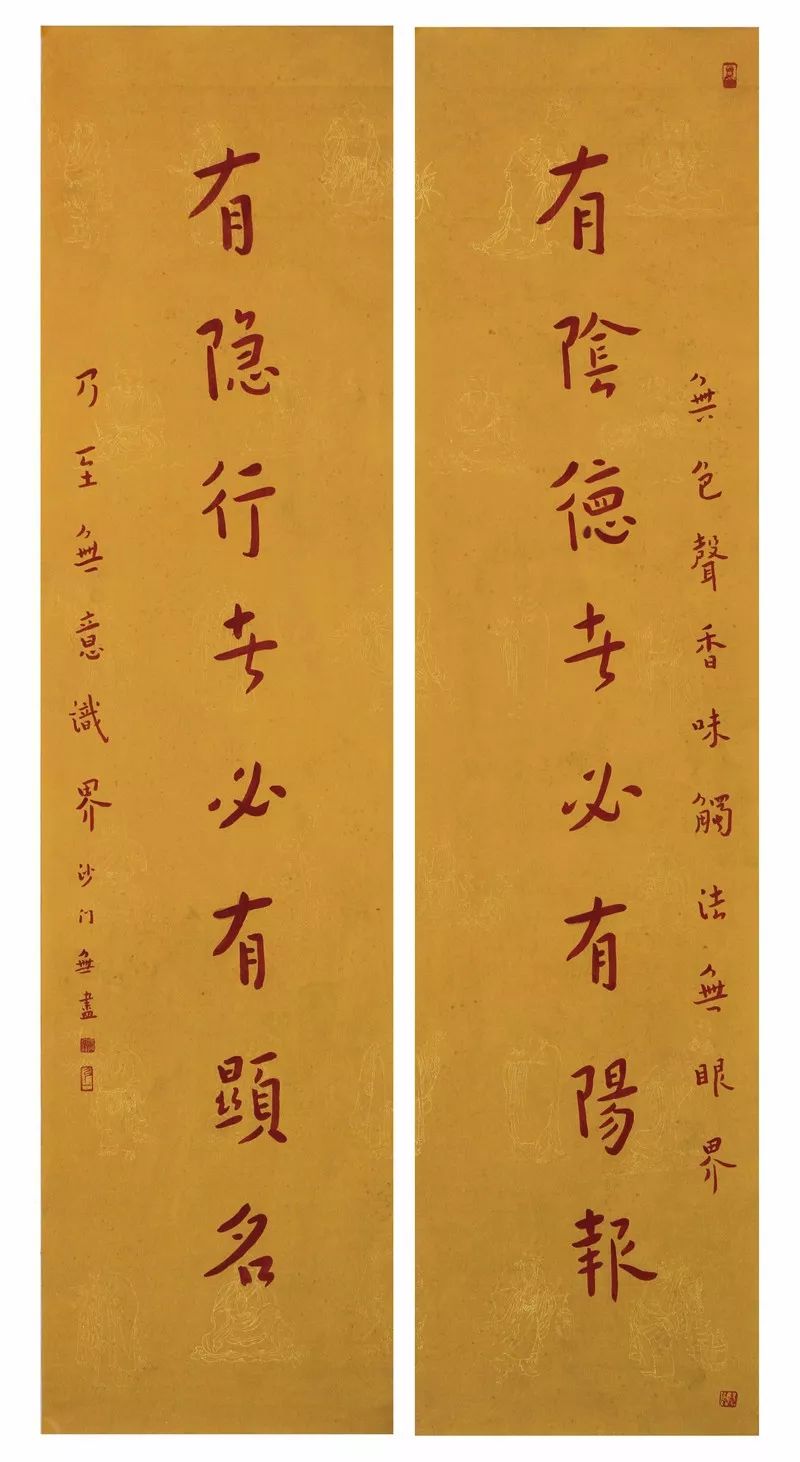 無色聲香味觸法無眼界
有陰德者必有陽報
有隐行者必有顯名
乃至無意識界 沙门無盡